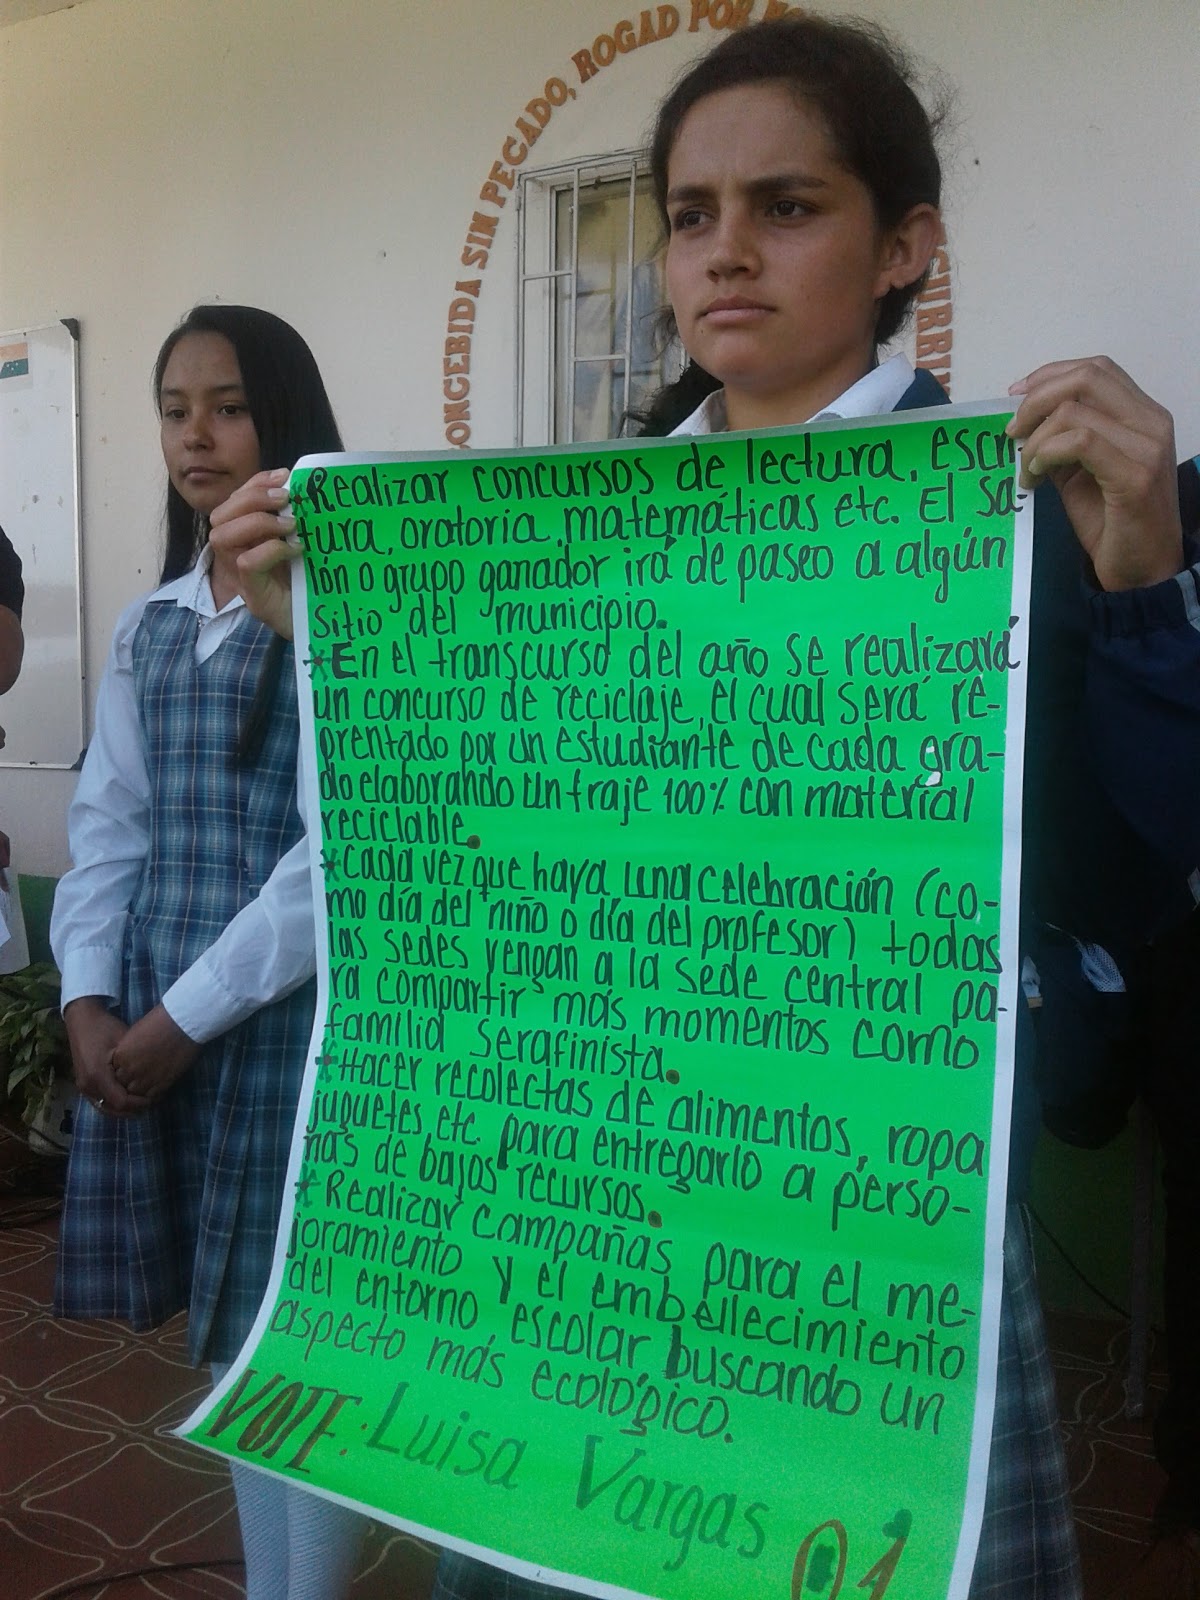 CONCEBIDA SIN PECADO, ROGAD POR NO
*Realizar concursos de lectura, escri-
tura, oratoria, matemáticas etc. El sa-
lón o grupo ganador irá de paseo a algún
sitio del municipio.
*En el transcurso del año se realizará
un concurso de reciclaje, el cual será re-
prentado por un estudiante de cada gra-
do elaborando un traje 100% con material
reciclable.
*Cada vez que haya una celebración (co-
mo día del niño o día del profesor) todas
las sedes vengan a la sede central pa-
ra compartir más momentos como
familia serafinista.
*Hacer recolectas de alimentos, ropa
juguetes, etc. para entregarlo a perso-
nas de bajos recursos.
*Realizar campañas para el me-
joramiento y el embellecimiento
del entorno escolar buscando un
aspecto más ecológico.
VOTE: Luisa Vargas 01